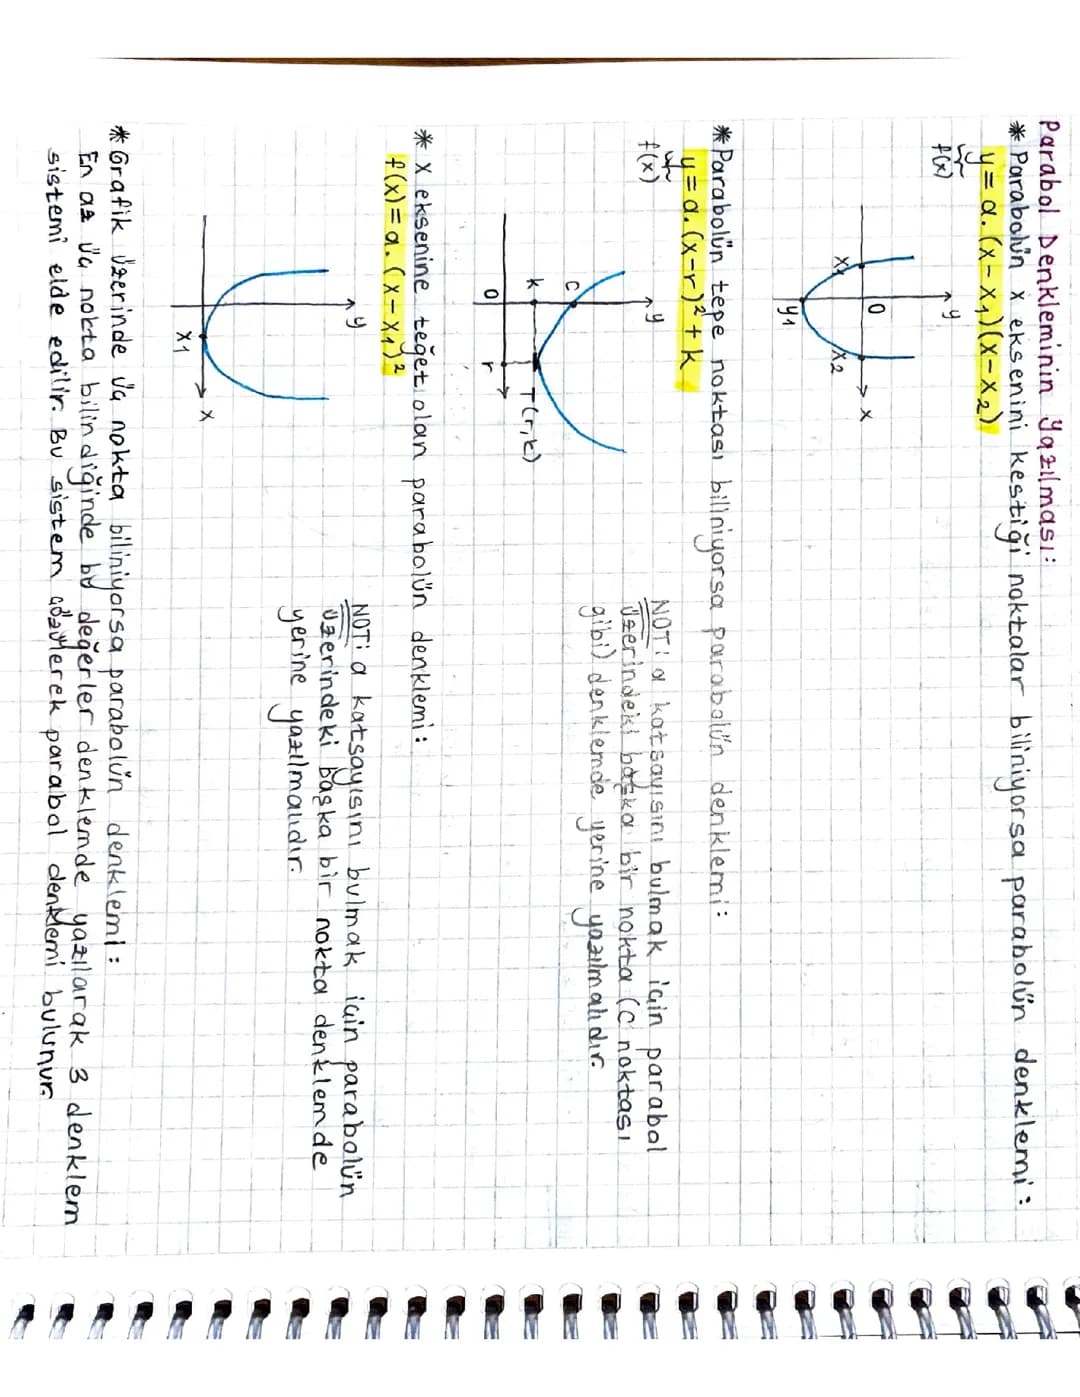 Parabol Denkleminin Yazılması:
* Parabolün x eksenini kestiği noktalar biliniyorsa parabolün denklemi:
y = a.(x-x₁)(x-x₂)
f(x)
y
x₁ 0 x₂ x
y₁
* Parabolün tepe noktası biliniyorsa parabolün denklemi:
y = a.(x-r)² + k
f(x)
y
c
k T(r,k)
0 r
NOT: a katsayısını bulmak için parabol
üzerindeki başka bir nokta (C noktası
gibi) denklemde yerine yazılmalıdır.
* X eksenine teğet olan parabolün denklemi:
f(x) = a.(x-x₁)²
y
x₁ x
NOT: a katsayısını bulmak için parabolün
üzerindeki başka bir nokta denklemde
yerine yazılmalıdır.
* Grafik üzerinde üç nokta biliniyorsa parabolün denklemi:
En az üç nokta bilindiğinde bu değerler denklemde yazılarak 3 denklem
sistemi elde edilir. Bu sistem çözülerek parabol denklemi bulunur.